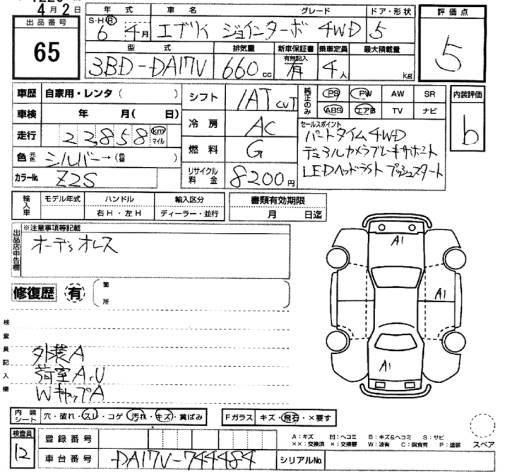 4月2日
出品番号
65
年式 車名 グレード ドア・形状
S・H・R
6年 4月 エブリイ ジョインターボ 4WD 5
型式 排気量 新車保証書 乗車定員 最大積載量
有無記入
3BD-DA17V 660cc 有 4人 kg
評価点
5
車歴 自家用・レンタ( )
車検 年 月( 日)
走行 22858 km マイル
色 元色 シルバー→(替色 )
カラーNo. Z2S
シフト IAT CVT
冷房 AC
燃料 G
リサイクル料金 8200円
純正のみ PS PW AW SR
ABS エアB TV ナビ
セールスポイント
パートタイム4WD
デュアルカメラブレーキサポート
LEDヘッドライト プッシュスタート
内装評価
b
輸入車 モデル年式 ハンドル 輸入区分
右H・左H ディーラー・並行
書類有効期限
月 日迄
出品店申告欄
※注意事項等記載
オーディオレス
修復歴 有 箇所
検査員記入欄
外装A
荷室A,U
WキャップA
A1
A1
A1
内装シート 穴・破れ・スレ・コゲ・汚れ・キズ・黄ばみ
Fガラス キズ・飛石・×要す
検査員
12
登録番号
車台番号 DA17V-744484 シリアルNo.
A:キズ 凹:ヘコミ B:キズ&ヘコミ S:サビ
××:交換済 ×:交換要 W:波有 C:腐食有 P:塗装
スペア